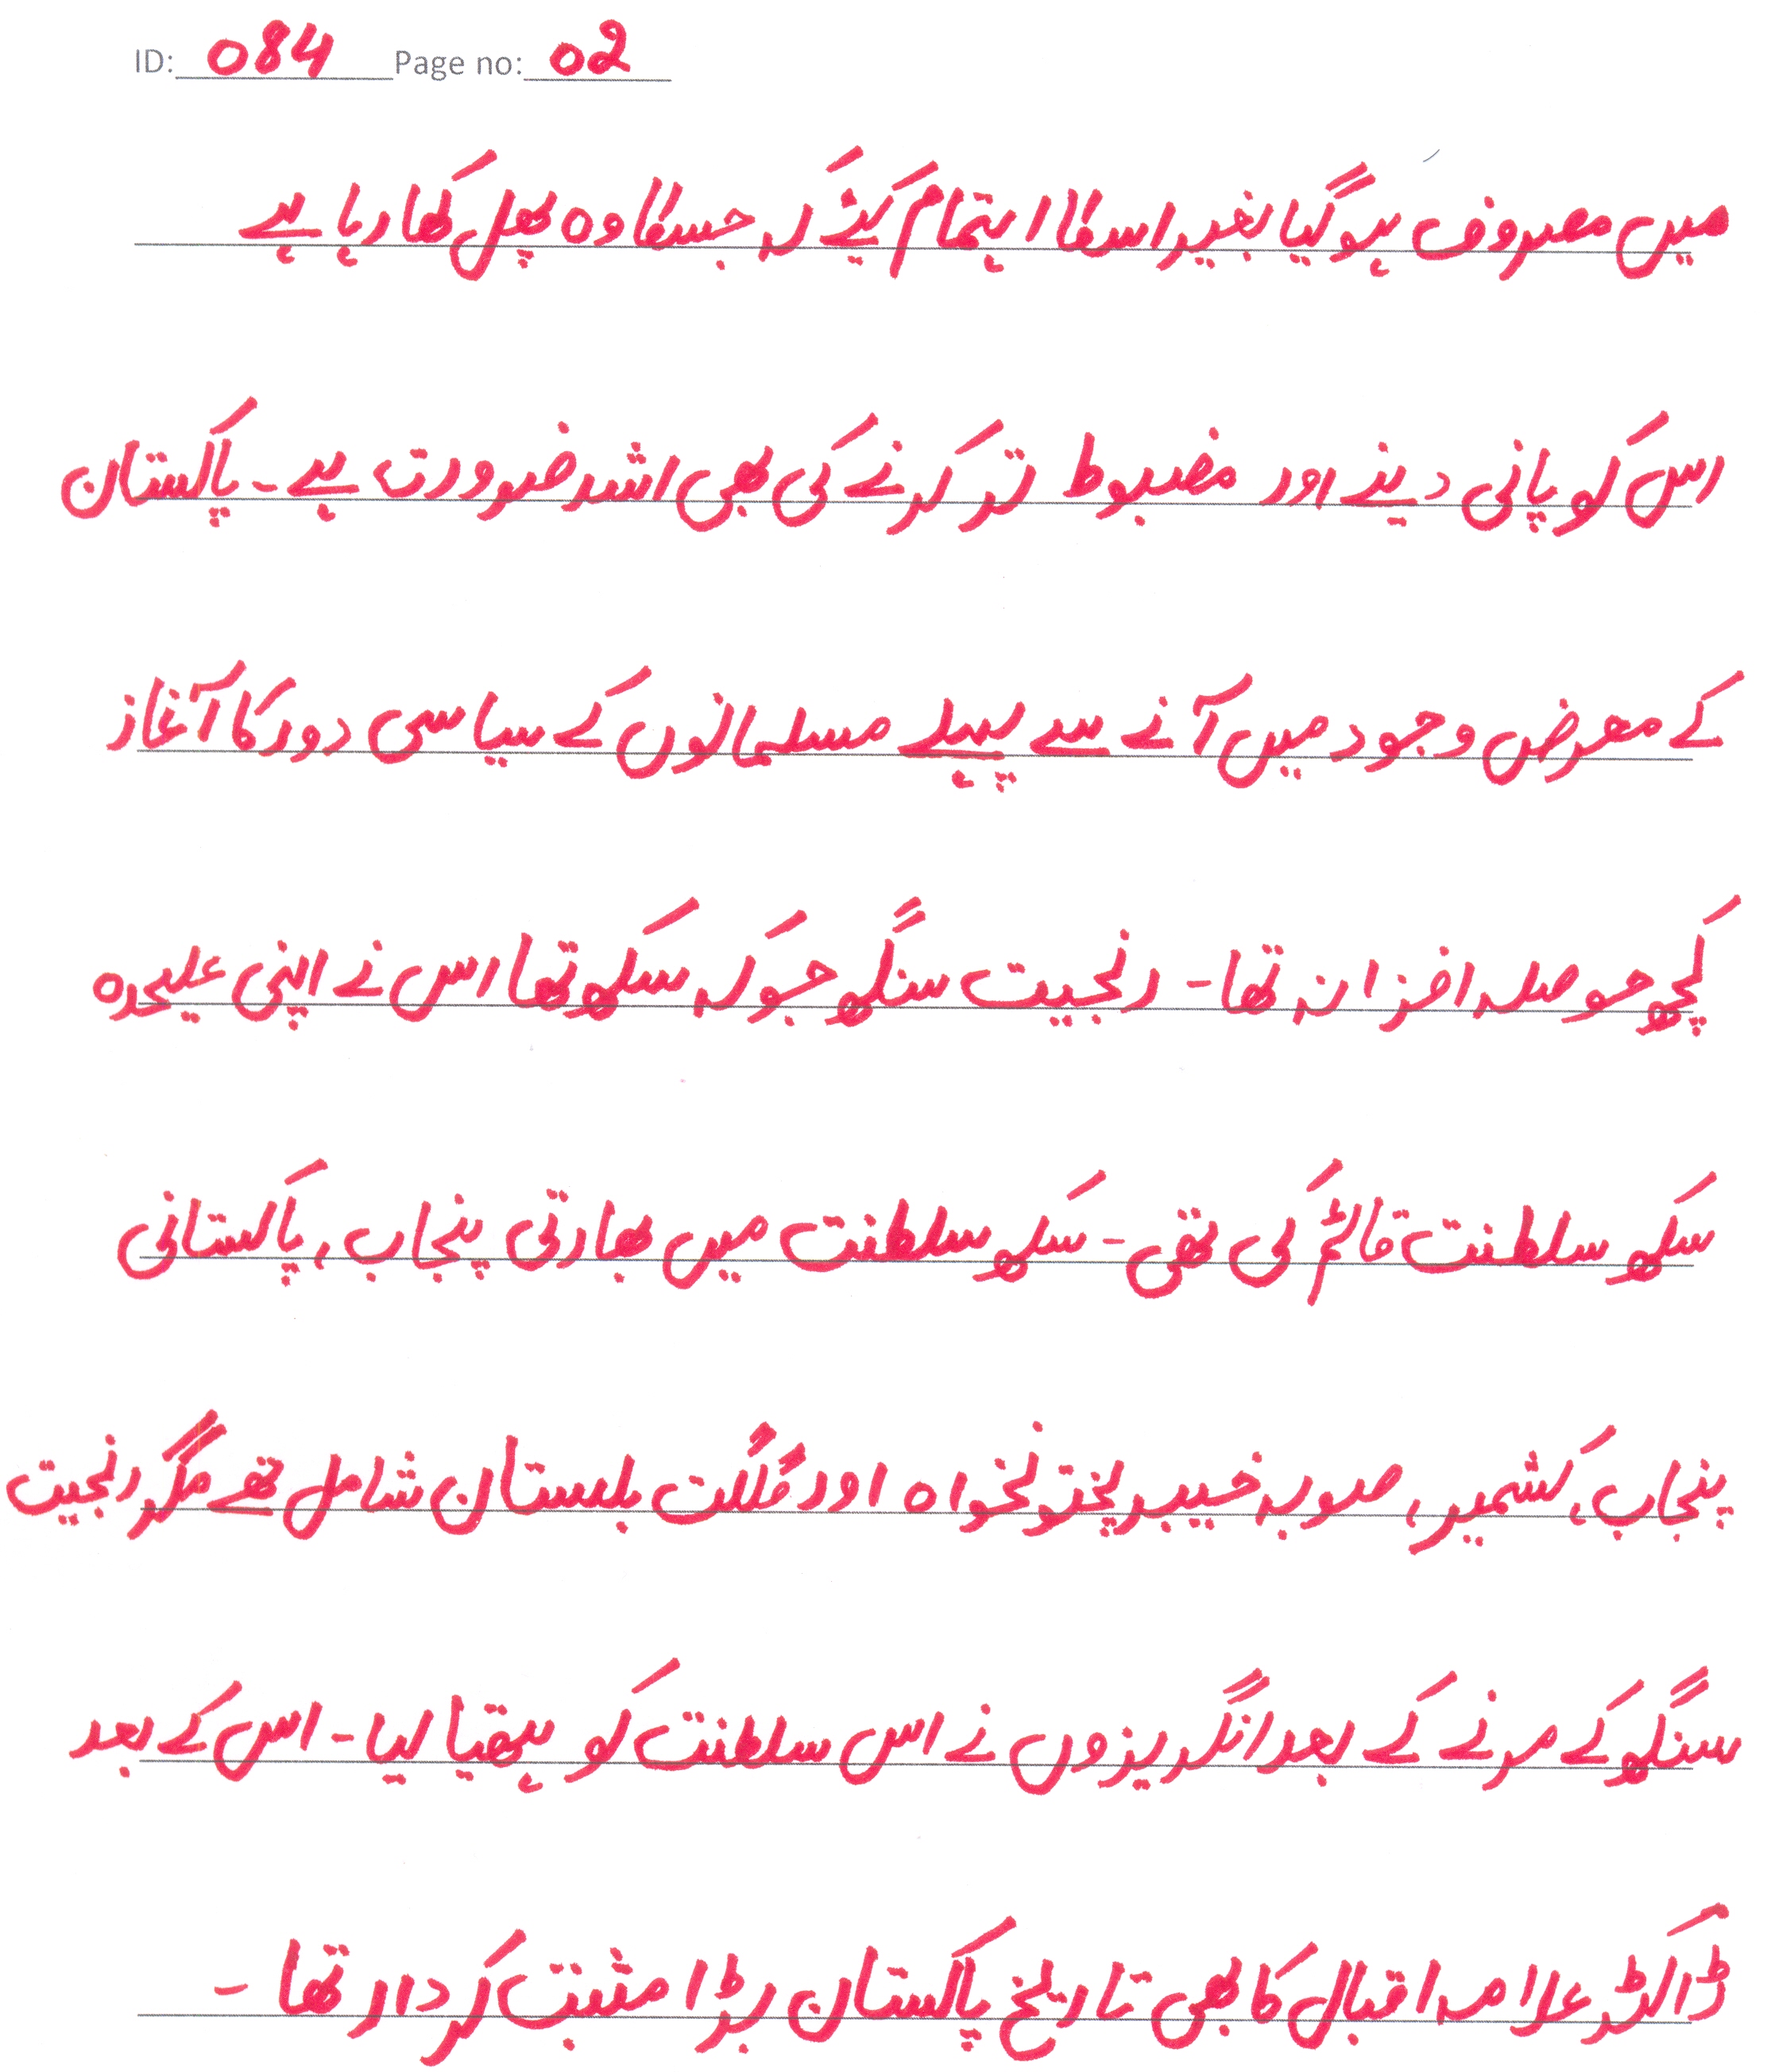 ID: 084 Page no: 02
میں مصروف ہو گیا بغیر اسکا اہتمام کیئے کہ جسکا وہ پھل کھا رہا ہے
اس کو پانی دینے اور مضبوط تر کرنے کی بھی اشد ضرورت ہے۔ پاکستان
کے معرض وجود میں آنے سے پہلے مسلمانوں کے سیاسی دور کا آغاز
کچھ حوصلہ افزا نہ تھا۔ رنجیت سنگھ جو کہ سکھ تھا اس نے اپنی علیحدہ
سکھ سلطنت قائم کی تھی۔ سکھ سلطنت میں بھارتی پنجاب، پاکستانی
پنجاب، کشمیر، صوبہ خیبر پختونخواہ اور گلگت بلستان شامل تھے مگر رنجیت
سنگھ کے مرنے کے بعد انگریزوں نے اس سلطنت کو ہتھیا لیا۔ اس کے بعد
ڈاکٹر علامہ اقبال کا بھی تاریخ پاکستان بڑا مثبت کردار تھا۔